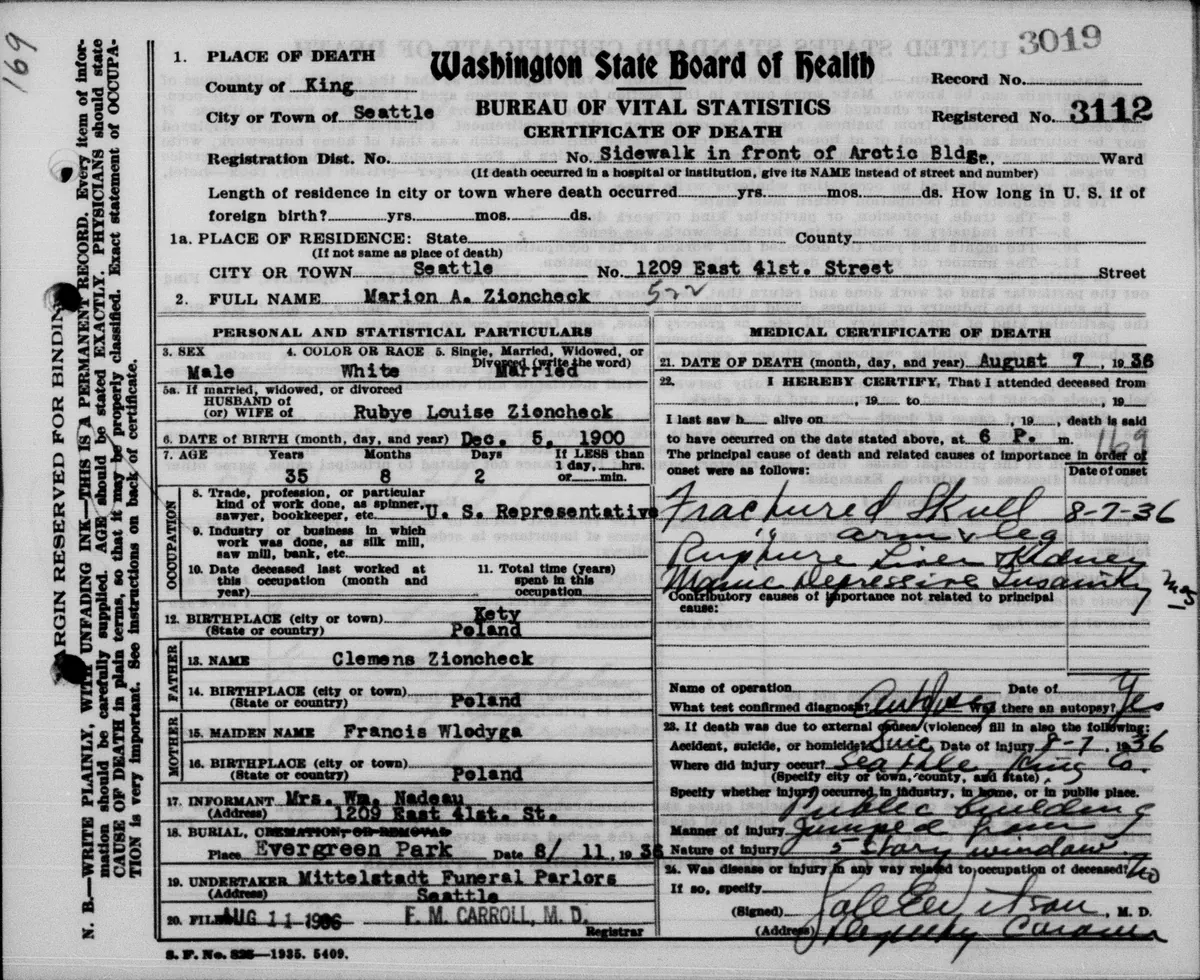 169
3019
Washington State Board of Health
BUREAU OF VITAL STATISTICS
CERTIFICATE OF DEATH
Record No.
Registered No. 3112
1. PLACE OF DEATH
County of King
City or Town of Seattle
Registration Dist. No. No. Sidewalk in front of Arctic Bldg. Ward
(If death occurred in a hospital or institution, give its NAME instead of street and number)
Length of residence in city or town where death occurred yrs. mos. ds. How long in U. S. if of
foreign birth? yrs. mos. ds.
1a. PLACE OF RESIDENCE: State County
(If not same as place of death)
CITY OR TOWN Seattle No. 1209 East 41st. Street Street
2. FULL NAME Marion A. Zioncheck 522
PERSONAL AND STATISTICAL PARTICULARS
3. SEX 4. COLOR OR RACE 5. Single, Married, Widowed, or
Divorced (write the word)
Male White Married
5a. If married, widowed, or divorced
HUSBAND of
(or) WIFE of Rubye Louise Zioncheck
6. DATE OF BIRTH (month, day, and year) Dec. 5. 1900
7. AGE Years Months Days If LESS than
1 day, hrs.
35 8 2 or min.
OCCUPATION
8. Trade, profession, or particular
kind of work done, as spinner,
sawyer, bookkeeper, etc. U. S. Representative
9. Industry or business in which
work was done, as silk mill,
saw mill, bank, etc.
10. Date deceased last worked at
this occupation (month and
year)
11. Total time (years)
spent in this
occupation
12. BIRTHPLACE (city or town) Kety
(State or country) Poland
FATHER
13. NAME Clemens Zioncheck
14. BIRTHPLACE (city or town)
(State or country) Poland
MOTHER
15. MAIDEN NAME Francis Wlodyga
16. BIRTHPLACE (city or town)
(State or country) Poland
17. INFORMANT Mrs. Wm. Nadeau
(Address) 1209 East 41st. St.
18. BURIAL, CREMATION, OR REMOVAL
Place Evergreen Park Date 8/ 11, 1936
19. UNDERTAKER Mittelstadt Funeral Parlors
(Address) Seattle
20. FILED AUG 11 1936 F. M. CARROLL, M. D.
Registrar
S. F. No. 825—1935. 5409.
MEDICAL CERTIFICATE OF DEATH
21. DATE OF DEATH (month, day, and year) August 7, 1936
22. I HEREBY CERTIFY, That I attended deceased from
, 19 to , 19
I last saw h alive on , 19 , death is said
to have occurred on the date stated above, at 6 P. m. 169
The principal cause of death and related causes of importance in order of
onset were as follows: Date of onset
Fractured Skull 8-7-36
" arm & leg
Rupture Liver & Kidney
Manic Depressive Insanity
Contributory causes of importance not related to principal
cause:
Name of operation Date of
What test confirmed diagnosis? Autopsy Was there an autopsy? Yes
23. If death was due to external causes (violence) fill in also the following:
Accident, suicide, or homicide? Suic Date of injury 8-7, 1936
Where did injury occur? Seattle King Co.
(Specify city or town, county, and state)
Specify whether injury occurred in industry, in home, or in public place.
Public building
Manner of injury Jumped from
Nature of injury 5 story window
24. Was disease or injury in any way related to occupation of deceased? No
If so, specify
(Signed) , M. D.
(Address) Deputy Coroner
MARGIN RESERVED FOR BINDING
N. B.—WRITE PLAINLY, WITH UNFADING INK—THIS IS A PERMANENT RECORD. Every item of infor-
mation should be carefully supplied. AGE should be stated EXACTLY. PHYSICIANS should state
CAUSE OF DEATH in plain terms, so that it may be properly classified. Exact statement of OCCUPA-
TION is very important. See instructions on back of certificate.